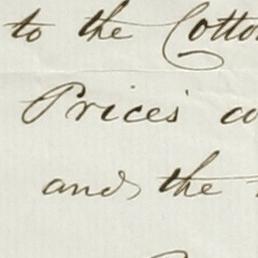 to the Cotto
Prices co
and the